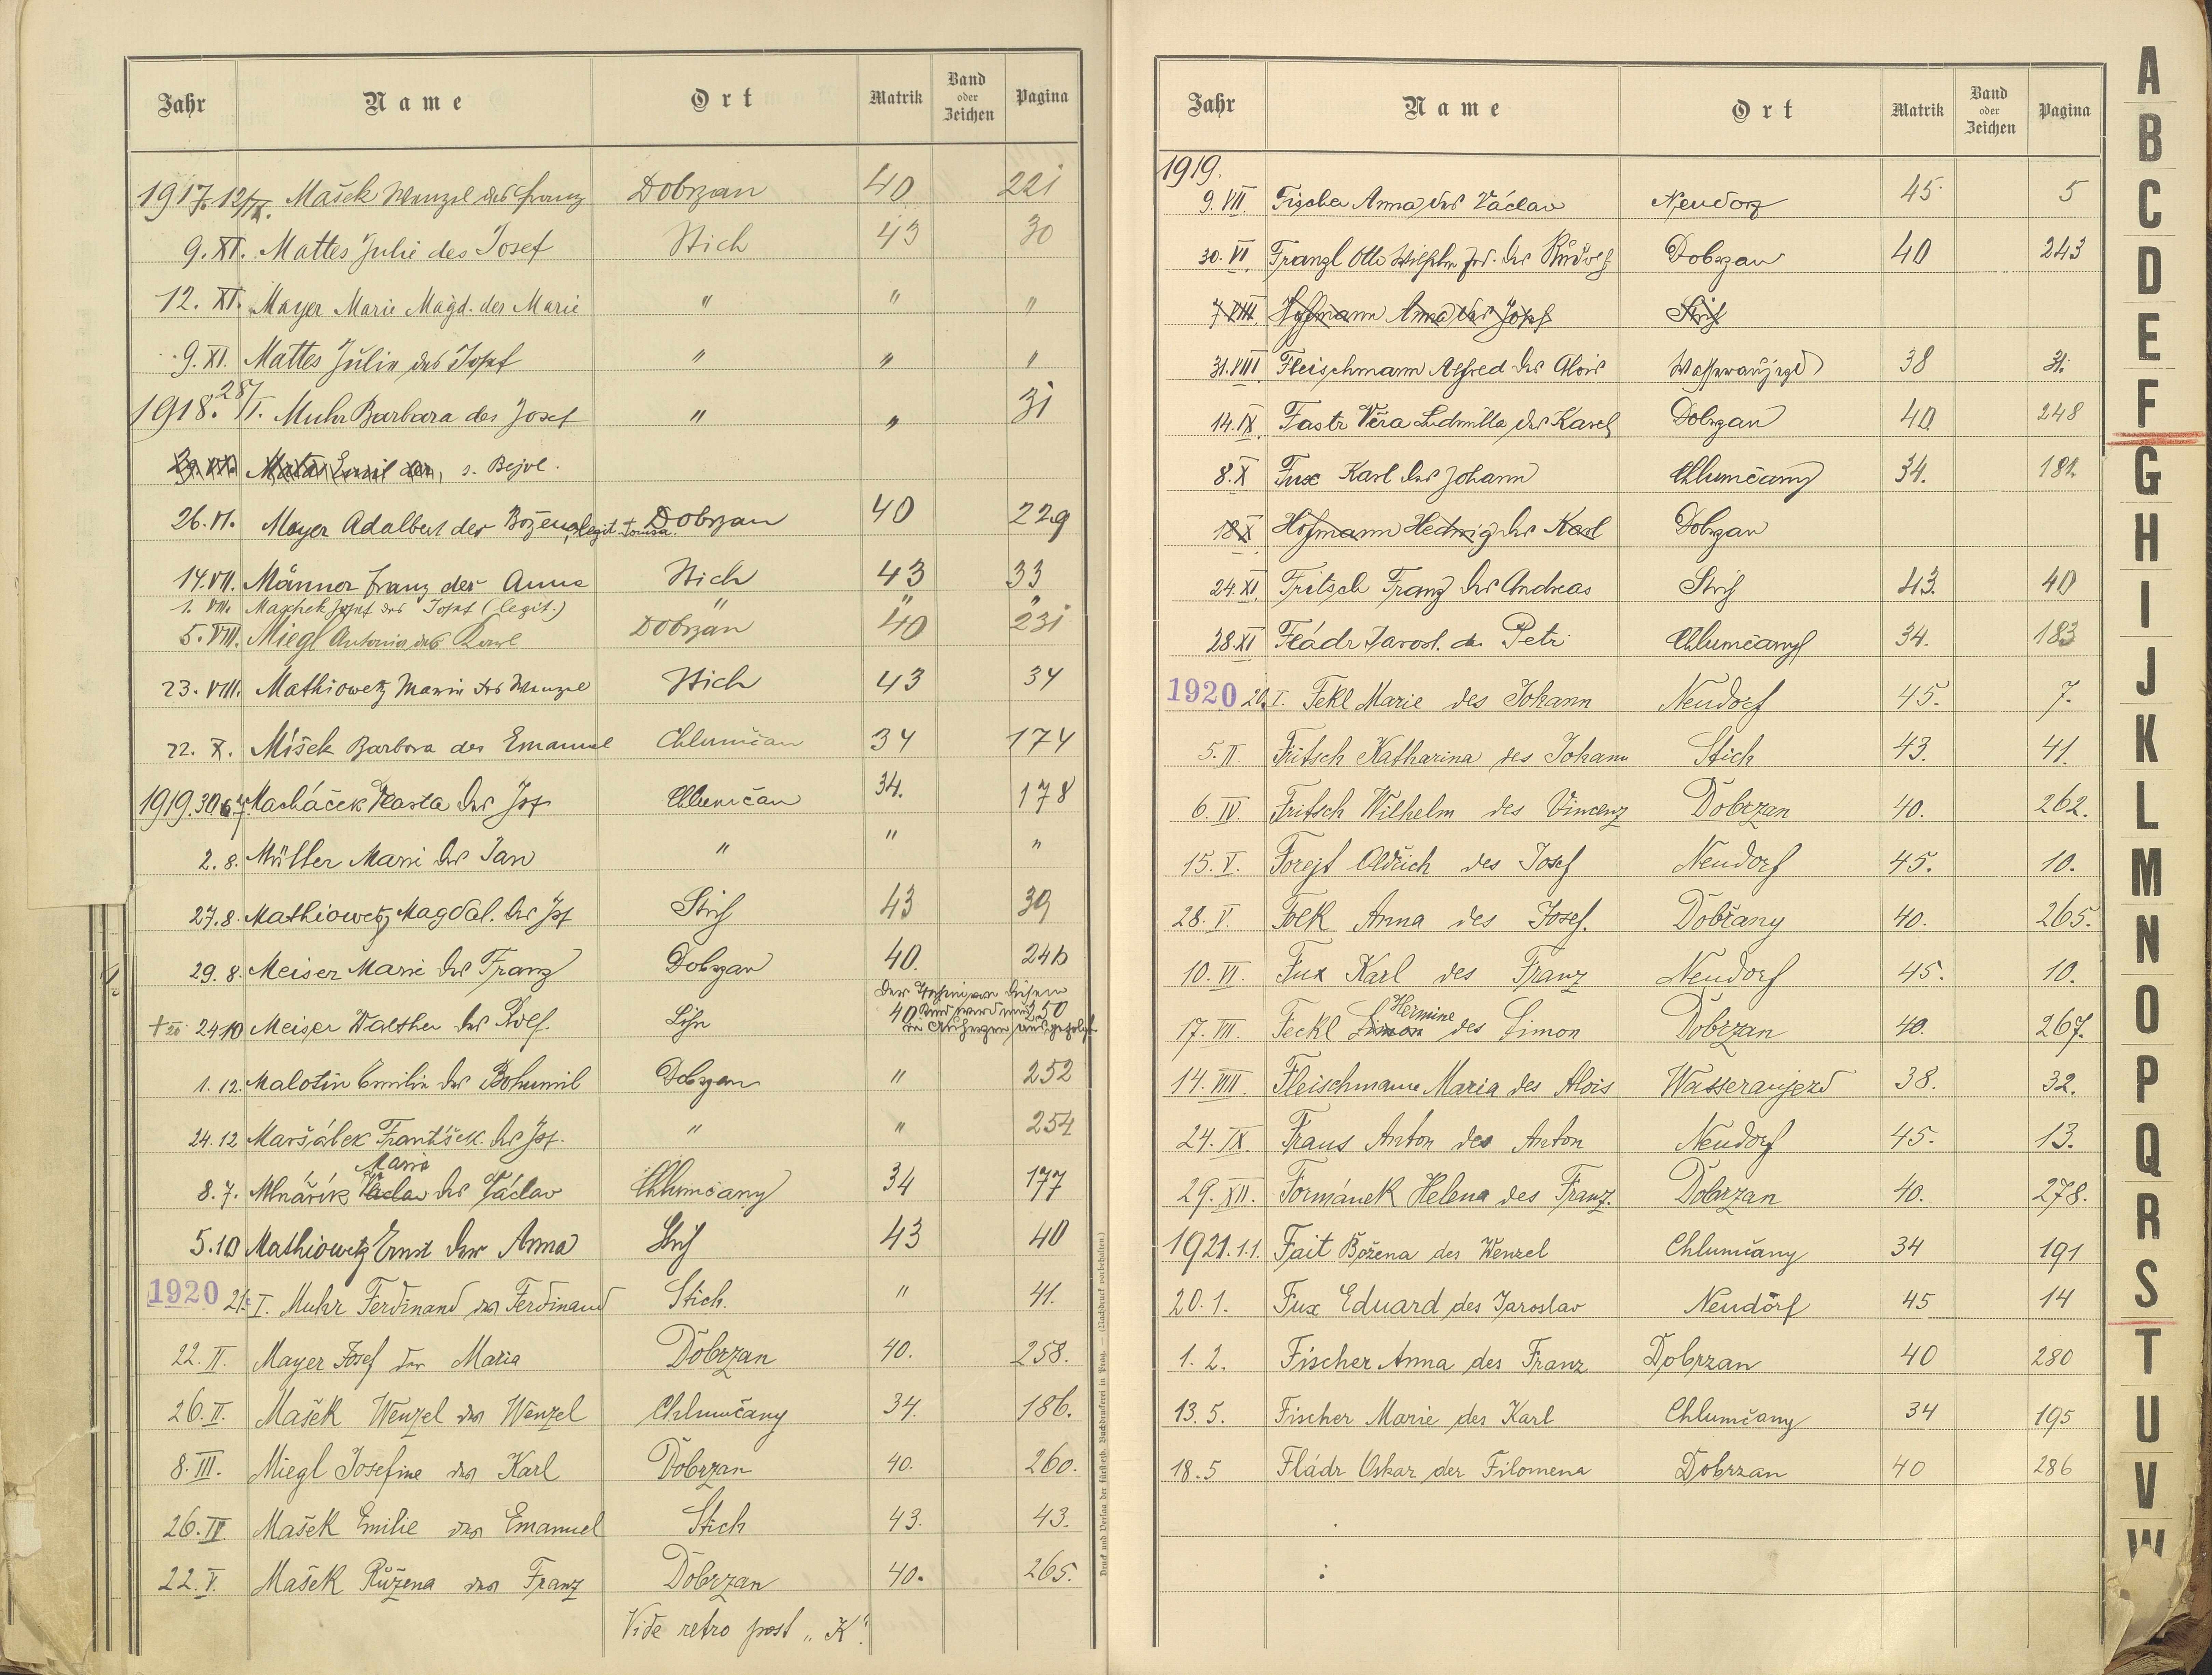 Jahr Name Ort Matrik Band oder Zeichen Pagina
1917. 12/IX. Mašek Wenzel des Franz Dobrzan 40 221
9. XI. Mattes Julie des Josef Stich 43 30
12. XI. Mayer Marie Magd. der Marie " " "
9. XI. Mattes Julie des Josef " " "
1918. 28/I. Muhr Barbara des Josef " " 31
Emil s. Bejvl.
26. VI. Mayer Adalbert der Božena, legit. Dobrzan 40 229
14. VII. Männer Franz der Anna Stich 43 33
1. VIII. Maschek Josef des Josef (legit.) " " "
5. VIII. Miegl Antonia des Karl Dobrzan 40 231
23. VIII. Mathiowetz Marie des Wenzel Stich 43 34
22. X. Míšek Barbora des Emanuel Chlumčan 34 174
1919. 30 Macháček Vlasta des Jos. Chlumčan 34. 178
2. 8. Müller Marie des Jan " " "
27. 8. Mathiowetz Magdal. des Jos. Stich 43 39
29. 8. Meiser Marie des Franz Dobrzan 40. 246
24 10 Meiser Walther des Rud. 40 250
1. 12. Malotin Emilie des Bohumil Dobrzan " 252
24. 12 Maršálek Frantíšek des Jos. " " 254
8. 7. Mlnářík Václav Marie des Václav Chlumčany 34 177
5. 10 Mathiowetz Ernst der Anna Stich 43 40
1920 21. I. Muhr Ferdinand des Ferdinand Stich. " 41.
22. II. Mayer Josef der Maria Dobrzan 40. 258.
26. II. Mašek Wenzel des Wenzel Chlumčany 34. 186.
8. III. Miegl Josefine des Karl Dobrzan 40. 260.
26. IV. Mašek Emilie des Emanuel Stich 43. 43.
22. V. Mašek Růžena des Franz Dobrzan 40. 265.
Vide retro post „K".
Druck und Verlag der fürsterzb. Buchdruckerei in Prag. — (Nachdruck vorbehalten.)
Jahr Name Ort Matrik Band oder Zeichen Pagina
1919.
9. VII. Fischer Anna des Václav Neudorf 45 5
30. VI. Franzl Otto Wilhelm des Rudolf Dobrzan 40 243
7. VIII. Hoffmann Anna des Josef Stich
31. VIII. Fleischmann Alfred des Alois Wasseraujezd 38 31.
14. IX. Fastr Věra Ludmilla des Karel Dobrzan 40 248
8. X Fux Karl des Johann Chlumčany 34. 181.
18 X Hofmann Hedwig des Karl Dobrzan
24. XI. Fritsch Franz des Andreas Stich 43. 40
28. XI Fládr Jarosl. des Petr Chlumčany 34. 183
1920 20. I. Fekl Marie des Johann Neudorf 45. 7.
5. II. Fritsch Katharina des Johann Stich 43. 41.
6. IV. Fritsch Wilhelm des Vincenz Dobrzan 40. 262.
15. V. Forejt Oldřich des Josef Neudorf 45. 10.
28. V. Folk Anna des Josef. Dobřany 40. 265.
10. VI. Fux Karl des Franz Neudorf 45. 10.
17. VII. Feckl Simon Hermine des Simon Dobrzan 40. 267.
14. VIII. Fleischmann Maria des Alois Wasseraujezd 38. 32.
24. IX. Fraus Anton des Anton Neudorf 45. 13.
29. XII. Formánek Helena des Franz. Dobrzan 40. 278.
1921. 1. 1. Fait Božena des Wenzel Chlumčany 34 191
20. 1. Fux Eduard des Jaroslav Neudorf 45 14
1. 2. Fischer Anna des Franz Dobrzan 40 280
13. 5. Fischer Marie des Karl Chlumčany 34 195
18. 5 Fládr Oskar der Filomena Dobrzan 40 286
A
B
C
D
E
F
G
H
I
J
K
L
M
N
O
P
Q
R
S
T
U
V
W